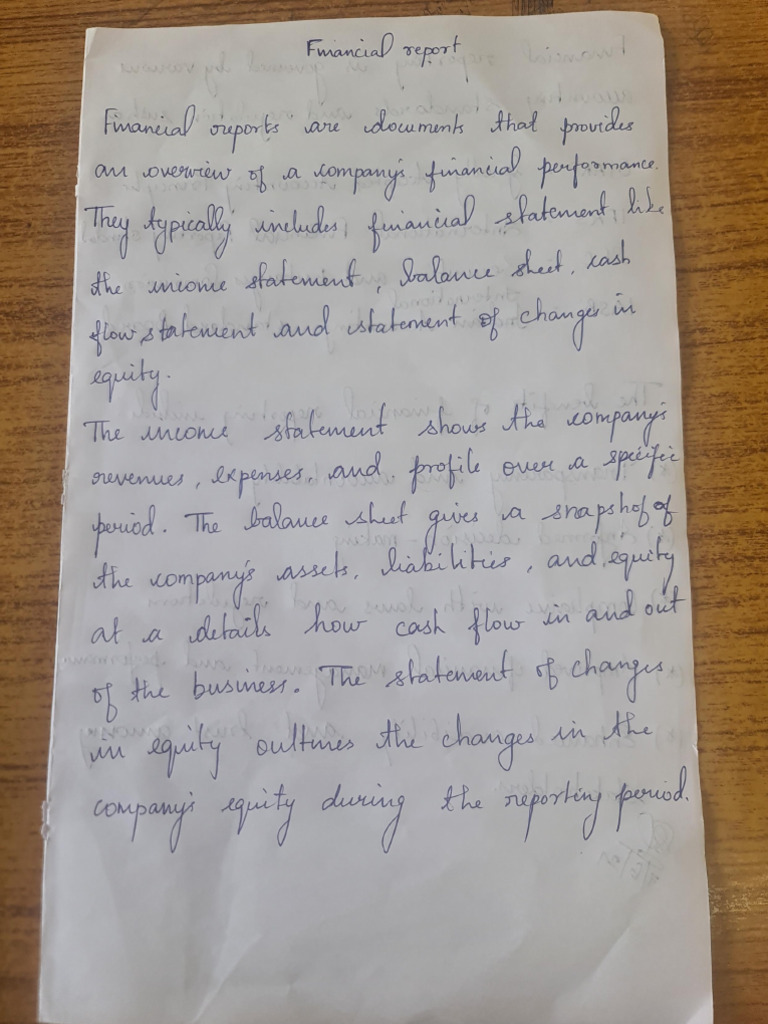 Financial report
Financial reports are documents that provides
an overview of a company's financial performance.
They typically includes financial statement, like
the income statement, balance sheet, cash
flow statement and statement of changes in
equity.
The income statement shows the company's
revenues, expenses, and profile over a specific
period. The balance sheet gives a snapshot of
the company's assets, liabilities, and equity
at a details how cash flow in and out
of the business. The statement of changes
in equity oultines the changes in the
company's equity during the reporting period.